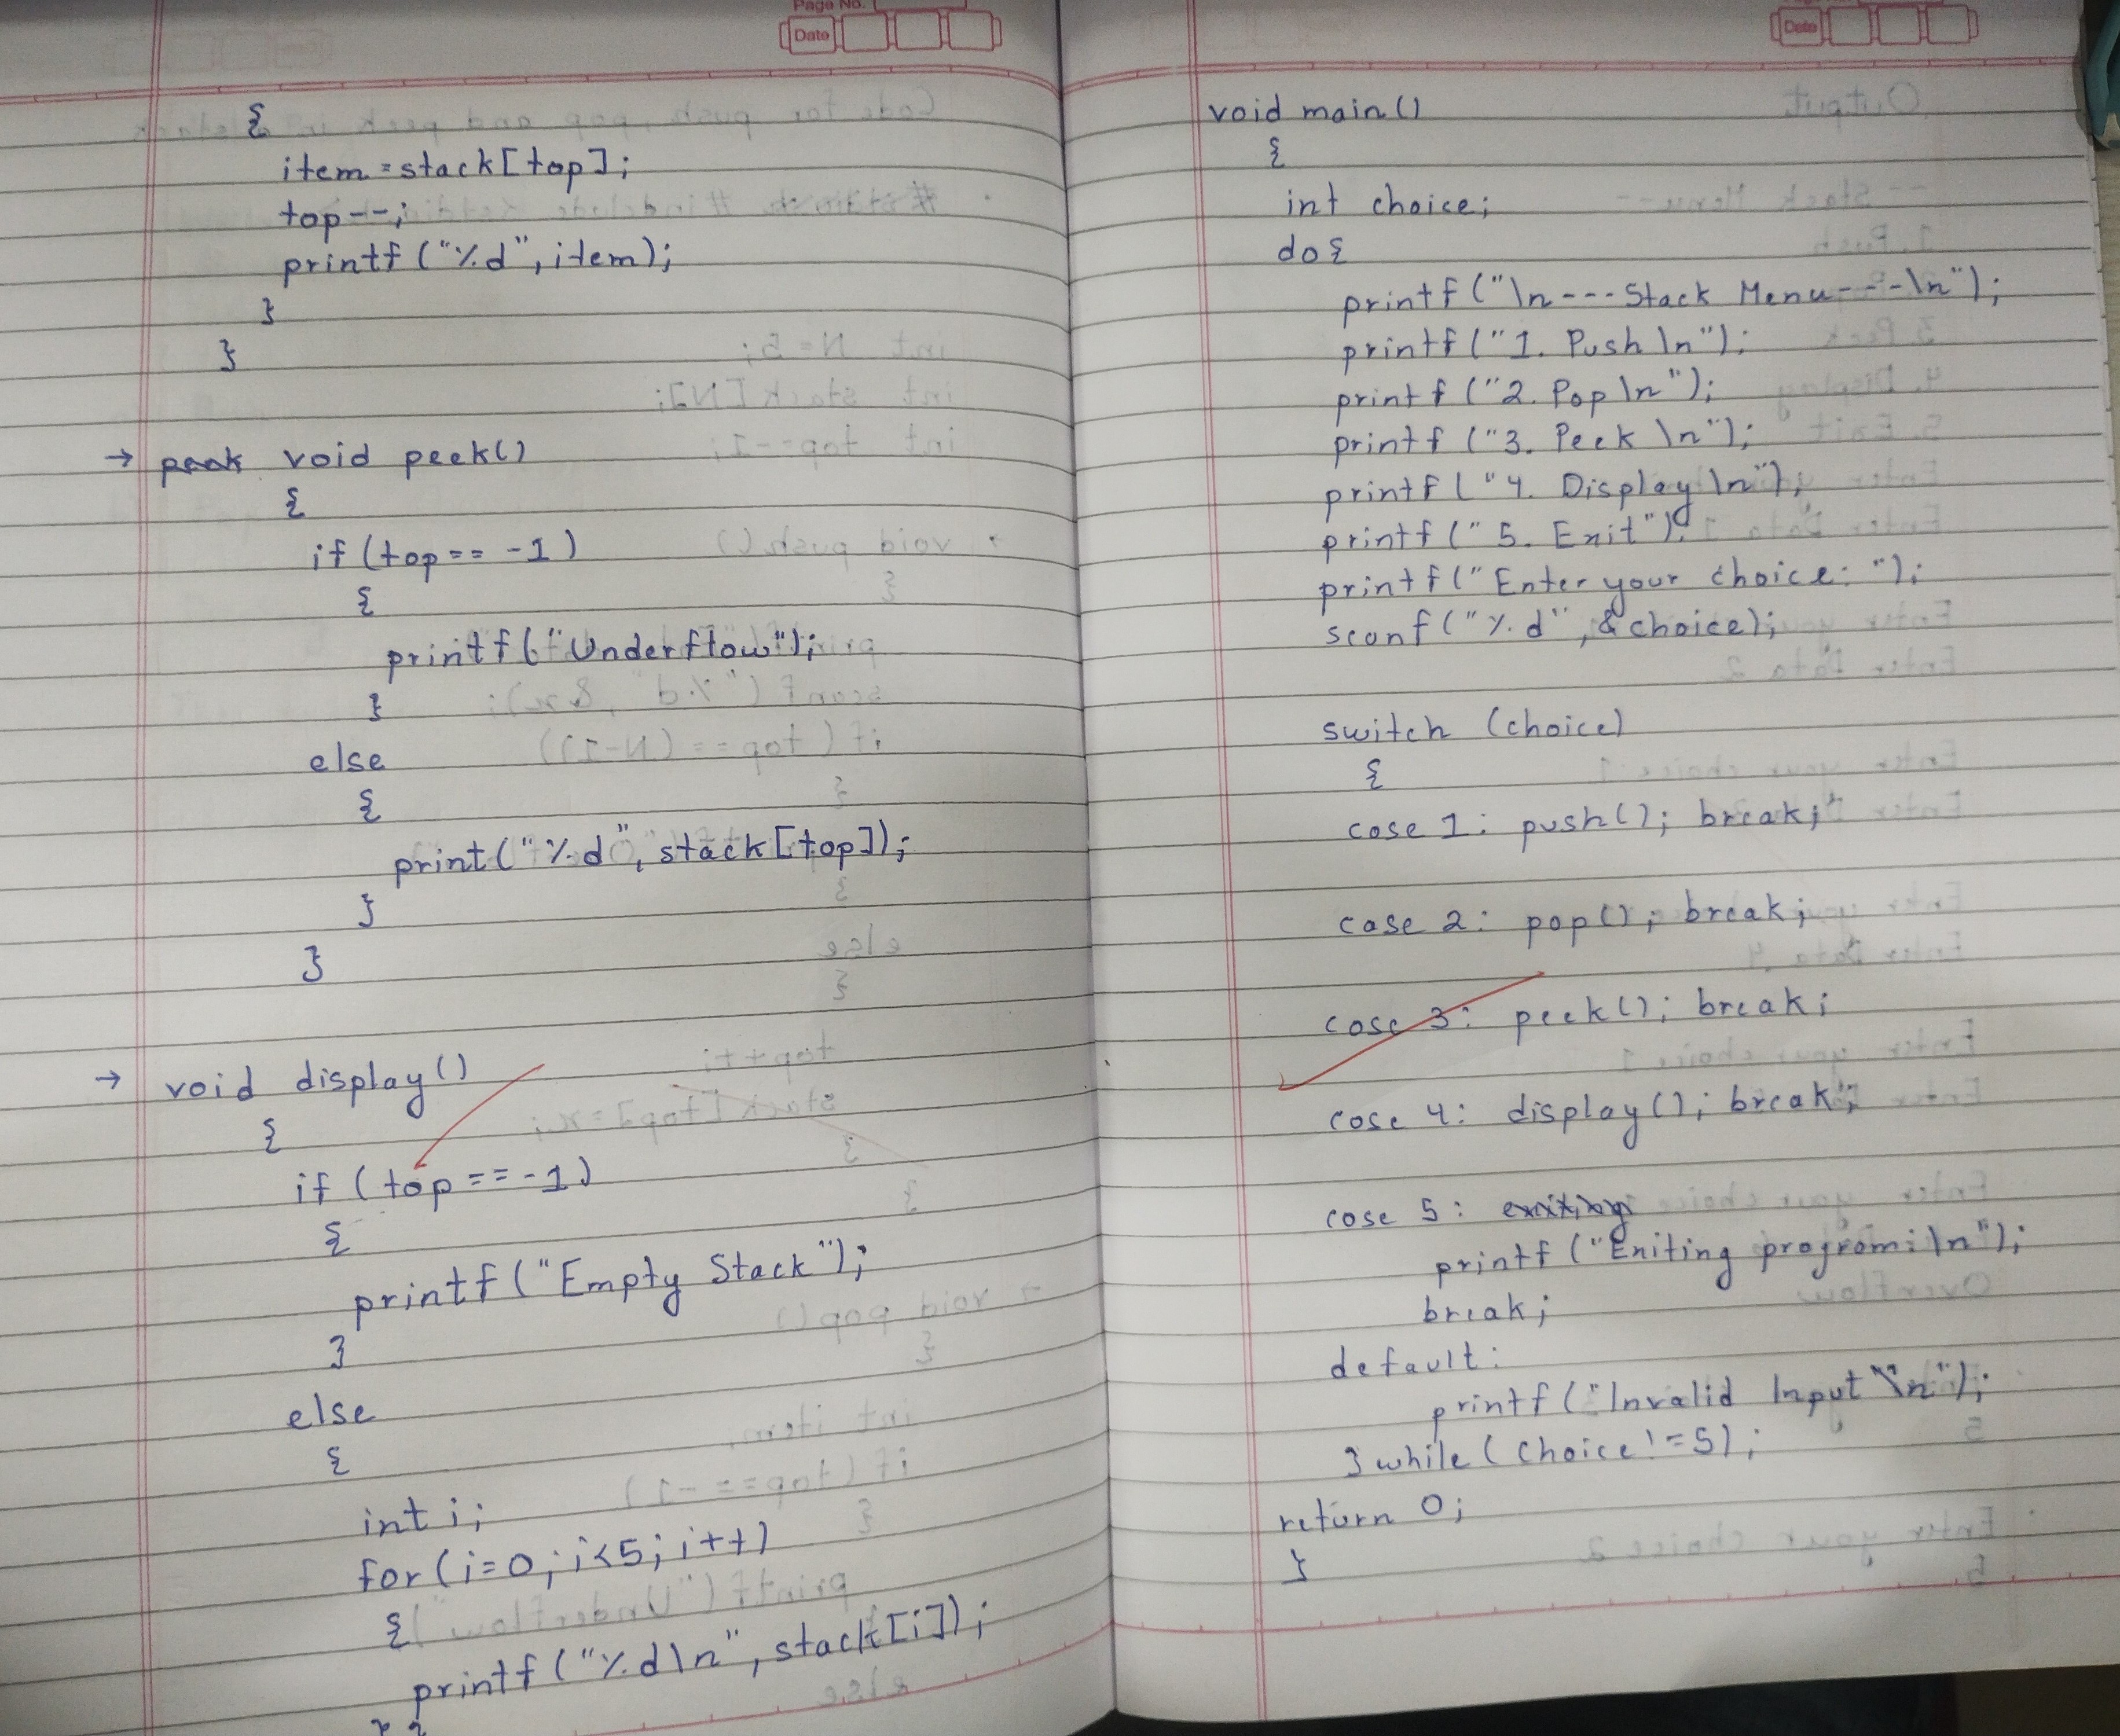 Page No.
Date
{
item = stack[top];
top--;
printf("%d", item);
}
}
→ peek void peek()
{
if (top == -1)
{
printf("Underflow");
}
else
{
print("%d", stack[top]);
}
}
→ void display()
{
if (top == -1)
{
printf("Empty Stack");
}
else
{
int i;
for(i=0; i<5; i++)
{
printf("%d\n", stack[i]);
} }
Date
void main()
{
int choice;
do{
printf("\n---Stack Menu---\n");
printf("1. Push \n");
printf("2. Pop \n");
printf("3. Peek \n");
printf("4. Display \n");
printf("5. Exit");
printf("Enter your choice: ");
scanf("%d", &choice);
switch (choice)
{
case 1: push(); break;
case 2: pop(); break;
case 3: peek(); break;
case 4: display(); break;
case 5: exiting
printf("Exiting program: \n");
break;
default:
printf("Invalid Input \n");
} while (choice != 5);
return 0;
}